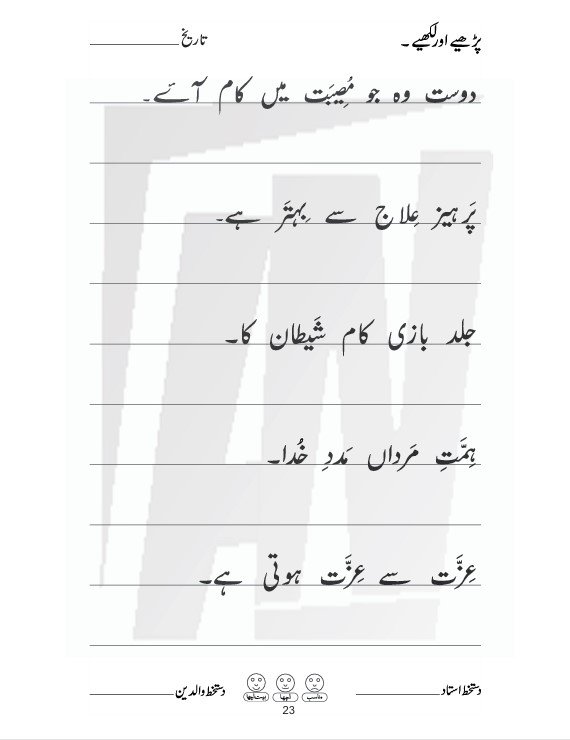 پڑھیے اور لکھیے ۔ تاریخ
دوست وہ جو مُصِیبَت میں کام آئے۔
پَرہیز عِلاج سے بِہتَر ہے۔
جلد بازی کام شَیطان کا۔
ہِمَّتِ مَرداں مَددِ خُدا۔
عِزَّت سے عِزَّت ہوتی ہے۔
دستخط استاد مناسب اچھا بہت اچھا دستخط والدین
23